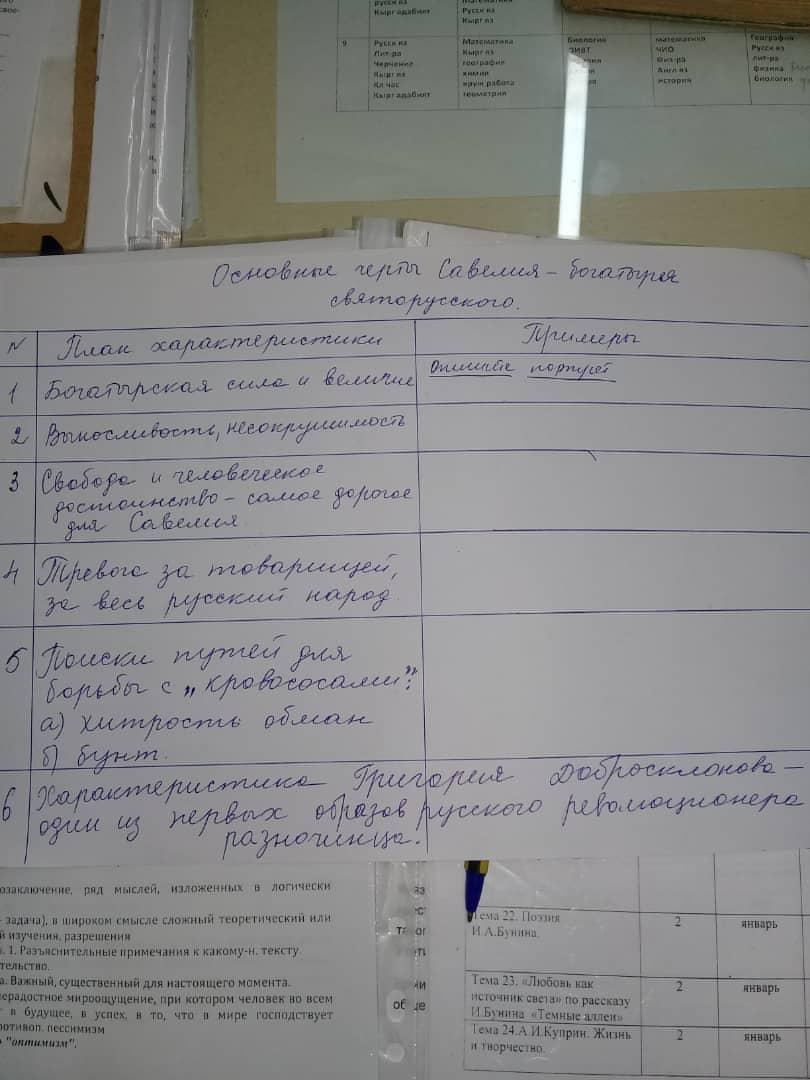 русск яз
Кырг адабият
Математика
Русск яз
Кырг яз
9
Русск яз
Лит-ра
Черчение
Кырг яз
Кл час
Кырг адабият
Математика
Кырг яз
география
химия
круж работа
геометрия
Биология
математика
ЧИО
Физ-ра
Англ яз
история
География
Русск яз
лит-ра
физика
биология
Основные черты Савелия – богатыря
святорусского.
N План характеристики Примеры
1 Богатырская сила и величие Опишите портрет
2 Выносливость, несокрушимость
3 Свобода и человеческое
достоинство – самое дорогое
для Савелия
4 Тревога за товарищей,
за весь русский народ.
5 Поиски путей для
борьбы с „кровососами":
а) хитрость обман
б) бунт.
6 Характеристика Григория Добросклонова –
один из первых образов русского революционера
разночинца.
озаключение, ряд мыслей, изложенных в логически
задача), в широком смысле сложный теоретический или
й изучения, разрешения
1. Разъяснительные примечания к какому-н. тексту.
тельство.
а. Важный, существенный для настоящего момента.
нерадостное мироощущение, при котором человек во всем
т в будущее, в успех, в то, что в мире господствует
ротивоп. пессимизм
"оптимизм".
Тема 22. Поэзия
И.А.Бунина.
2
январь
Тема 23. «Любовь как
источник света» по рассказу
И.Бунина «Темные аллеи»
2
январь
Тема 24.А.И.Куприн. Жизнь
и творчество.
2
январь